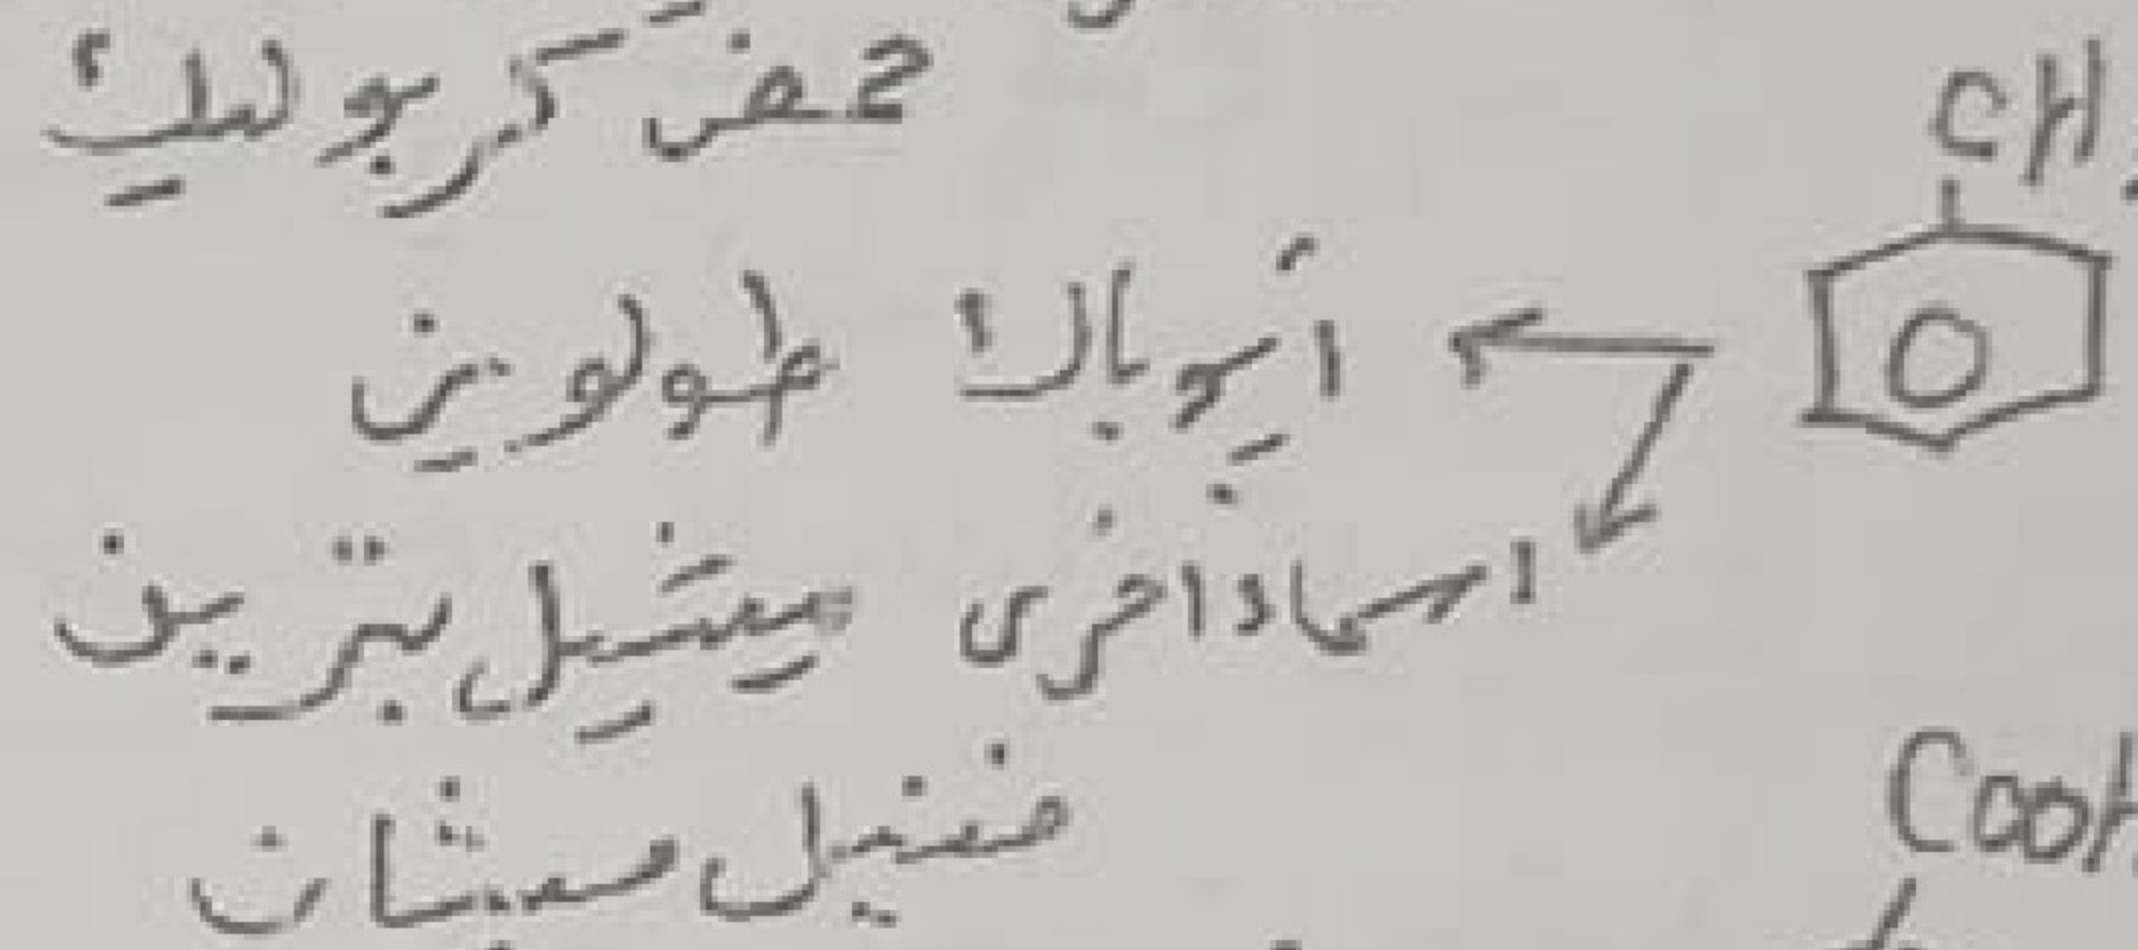 حمض كربوليك
CH
أيوباك طولوين
اسماء اخرى ميثيل بنزين
فينيل ميثان
CooH